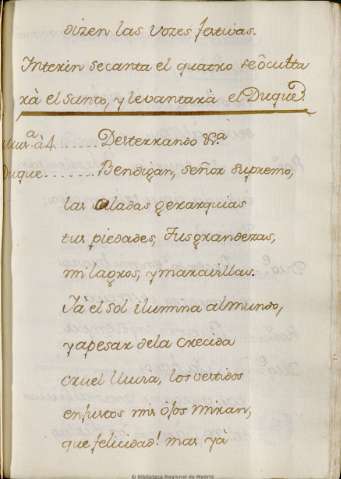 dizen las vozes festivas.
Interin se canta el quatro se òculta
rà el Santo, y levantarà el Duque.
à 4....... Desterrando &.ª
Duque....... Bendigan, señor supremo,
las aladas gerarquias
tus piedades, tus grandezas,
milagros, y maravillas.
Yà el sol ilumina al mundo,
y apesar de la crecida
cruel lluvia, los vestidos
enjutos mis òjos miran,
que felicidad! mas yà
© Biblioteca Nacional de España